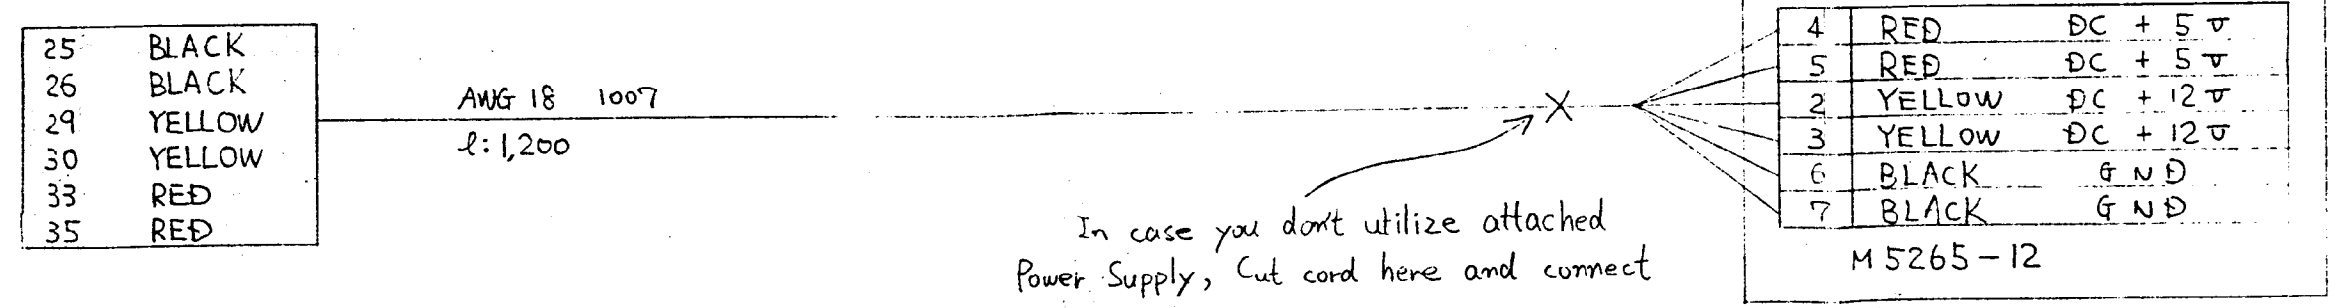 25 BLACK
26 BLACK
29 YELLOW
30 YELLOW
33 RED
35 RED
AWG 18 1007
l: 1,200
X
In case you don't utilize attached
Power Supply, Cut cord here and connect
4 RED DC + 5 V
5 RED DC + 5 V
2 YELLOW DC + 12 V
3 YELLOW DC + 12 V
6 BLACK GND
7 BLACK GND
M 5265-12